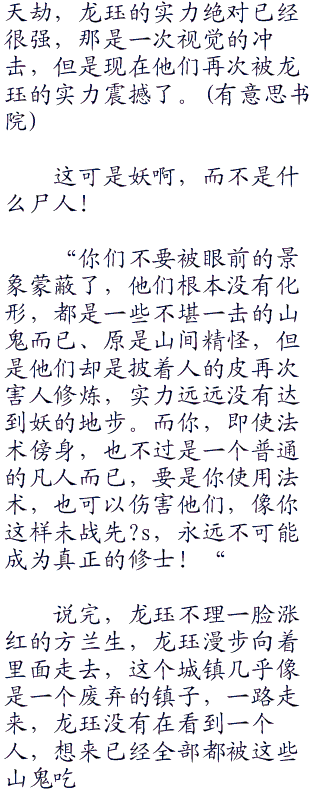 天劫，龙珏的实力绝对已经
很强，那是一次视觉的冲
击，但是现在他们再次被龙
珏的实力震撼了。(有意思书
院)
这可是妖啊，而不是什
么尸人！
“你们不要被眼前的景
象蒙蔽了，他们根本没有化
形，都是一些不堪一击的山
鬼而已、原是山间精怪，但
是他们却是披着人的皮再次
害人修炼，实力远远没有达
到妖的地步。而你，即使法
术傍身，也不过是一个普通
的凡人而已，要是你使用法
术，也可以伤害他们，像你
这样未战先?s，永远不可能
成为真正的修士！“
说完，龙珏不理一脸涨
红的方兰生，龙珏漫步向着
里面走去，这个城镇几乎像
是一个废弃的镇子，一路走
来，龙珏没有在看到一个
人，想来已经全部都被这些
山鬼吃